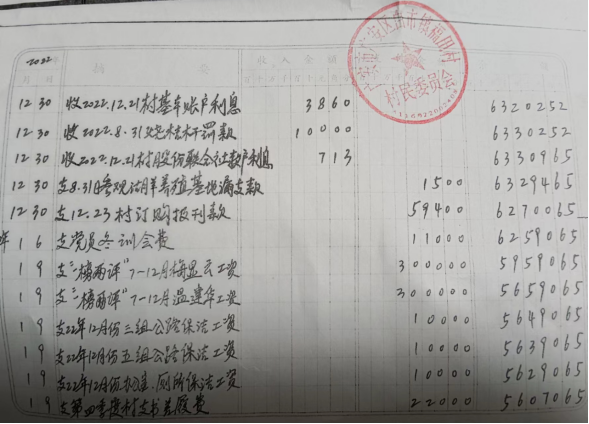 2022
月 日 摘 收入金额
村民委员会
12 30 收2022.12.21村基本账户利息 3860 6320252
12 30 收2022.8.31烧秸秆罚款 10000 6330252
12 30 收2022.12.21村股份联合社账户利息 713 6330965
12 30 支8.31日参观湖羊养殖基地漏支款 1500 6329465
12 30 支12.23村订购报刊款 59400 6270065
年 1 6 支党员冬训会费 11000 6259065
1 9 支"三榜两评"7-12月梅显云工资 300000 5959065
1 9 支"三榜两评"7-12月温建华工资 300000 5659065
1 9 支22年12月份三组公路保洁工资 10000 5649065
1 9 支22年12月份五组公路保洁工资 10000 5639065
1 9 支22年12月份 厕所保洁工资 10000 5629065
1 9 支第四季度村支书差旅费 22000 5607065